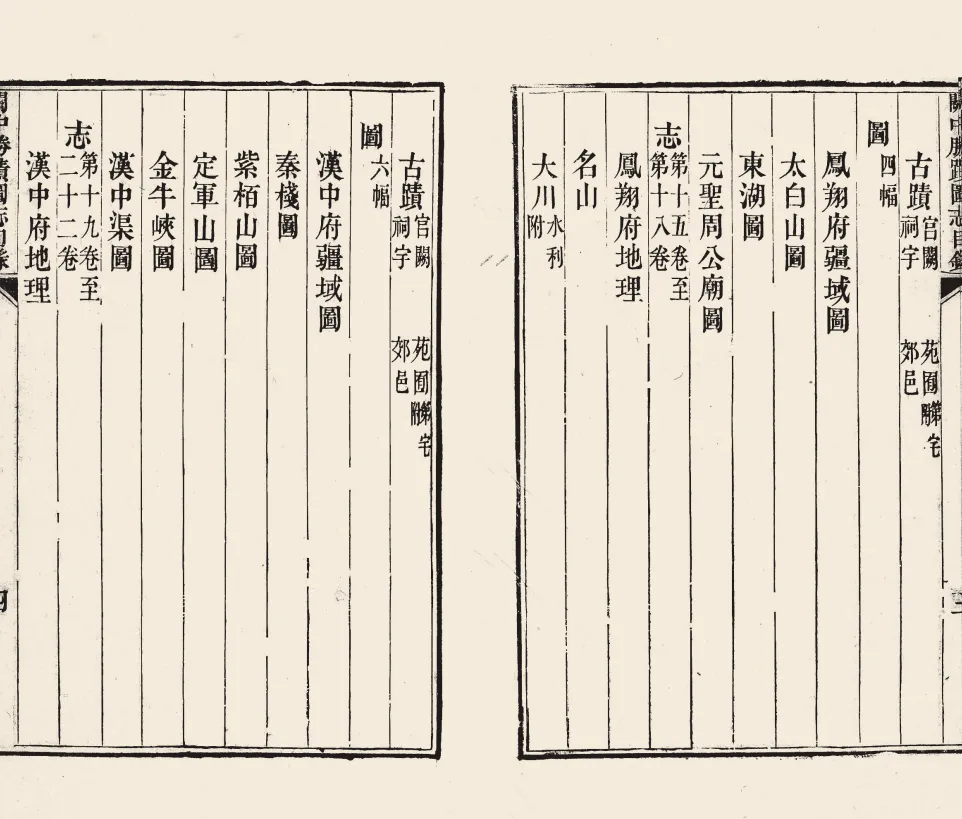 關中勝蹟圖志目錄
古蹟 官闕 祠宇 苑囿附第宅 郊邑
圖 四幅
鳳翔府疆域圖
太白山圖
東湖圖
元聖周公廟圖
志 第十五卷至第十八卷
鳳翔府地理
名山
大川 水利附
古蹟 官闕 祠宇 苑囿附第宅 郊邑
圖 六幅
漢中府疆域圖
秦棧圖
紫栢山圖
定軍山圖
金牛峽圖
漢中渠圖
志 第十九卷至二十二卷
漢中府地理
關中勝蹟圖志目錄
四